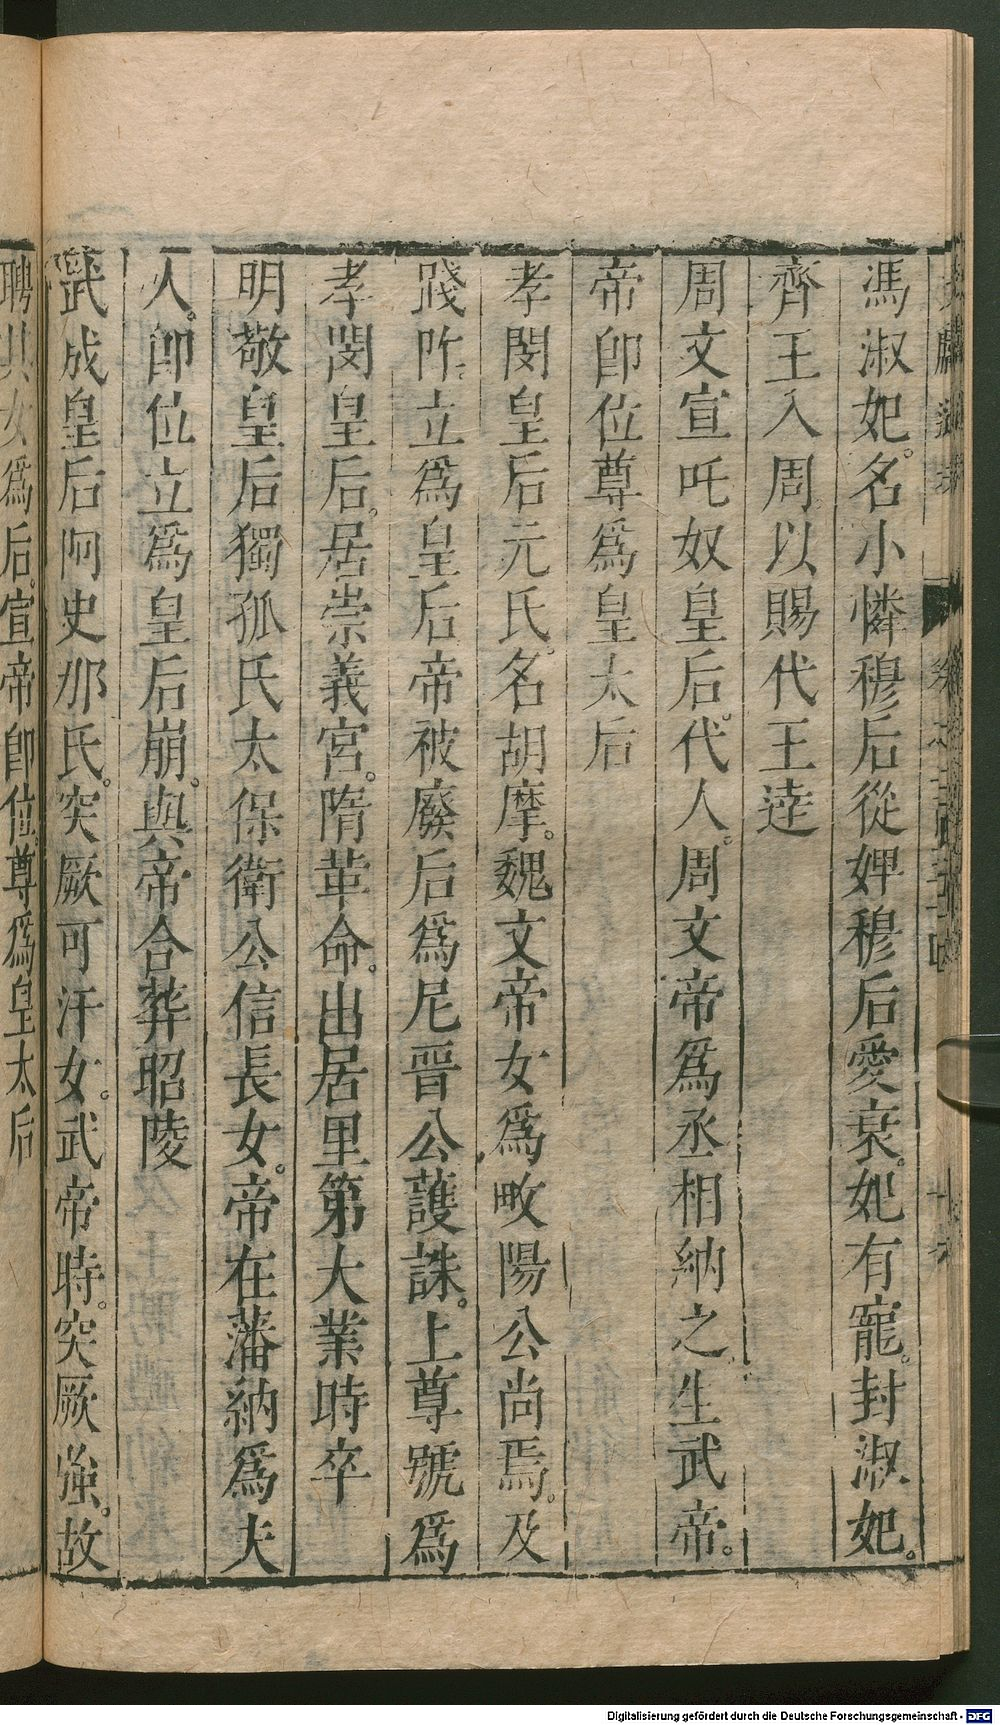 馮淑妃。名小憐穆后從婢穆后愛衰。妃有寵。封淑妃。
齊王入周以賜代王達
周文宣叱奴皇后。代人。周文帝爲丞相納之。生武帝。
帝卽位尊爲皇太后
孝閔皇后元氏。名胡摩。魏文帝女爲畋陽公尚焉。及
踐阼。立爲皇后帝被廢后爲尼晉公護誅。上尊號爲
孝閔皇后。居崇義宮。隋革命。出居里第大業時卒
明敬皇后獨孤氏太保衛公信長女。帝在藩納爲夫
人。卽位立爲皇后崩。與帝合葬昭陵
武成皇后阿史那氏。突厥可汗女。武帝時。突厥強。故
聘其女爲后。宣帝卽位。尊爲皇太后
Digitalisierung gefördert durch die Deutsche Forschungsgemeinschaft - DFG